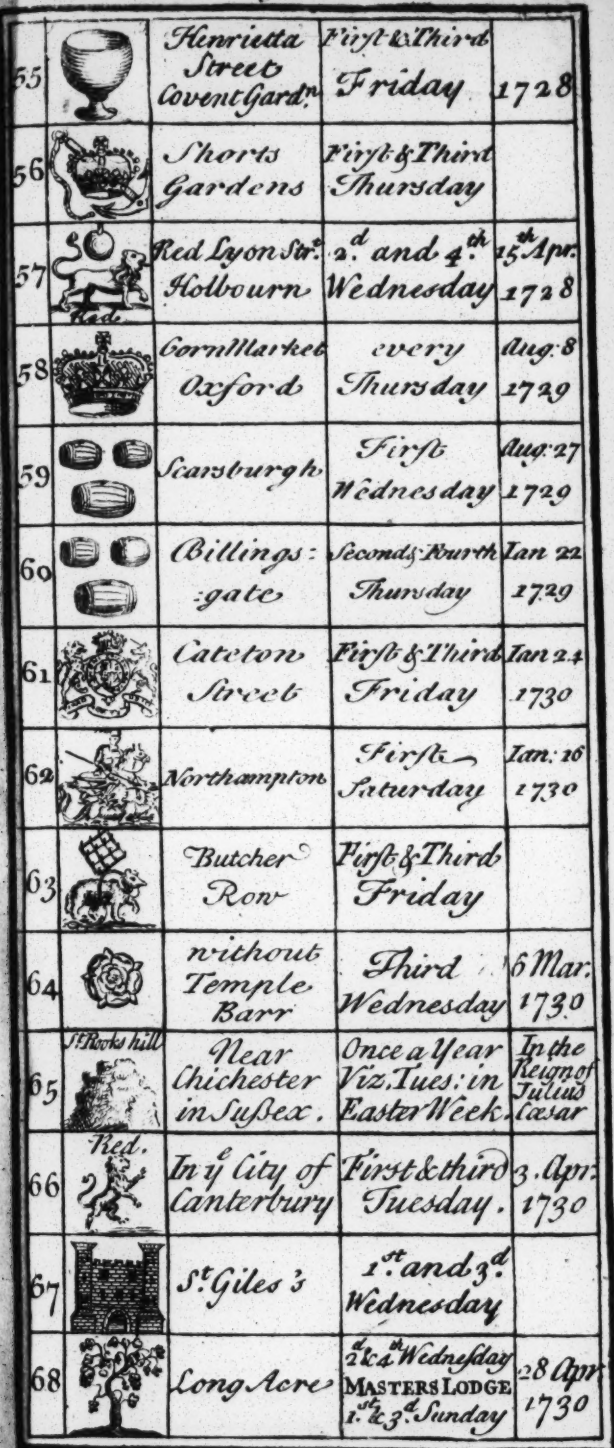 55 Henrietta Street Covent Gardn. Firſt & Third Friday 1728
56 Shorts Gardens Firſt & Third Thursday
57 Red. Red Lyon Strt. Holbourn 2d. and 4th. Wednesday 15th Apr. 1728
58 Corn Market Oxford every Thursday Aug: 8 1729
59 Scarsburgh Firſt Wednesday Aug: 27 1729
60 Billings: :gate Second & Fourth Thursday Ian 22 1729
61 Cateton Street Firſt & Third Friday Ian 24 1730
62 Northampton Firſt Saturday Ian: 16 1730
63 Butcher Row Firſt & Third Friday
64 without Temple Barr Third Wednesday 6 Mar. 1730
65 St. Rooks hill Near Chichester in Sußex. Once a Year Viz. Tues: in Easter Week. In the Reign of Julius Cæsar
66 Red. In ye City of Canterbury First & third Tuesday. 3. Apr: 1730
67 St. Giles's 1st. and 3d. Wednesday
68 Long Acre 2d & 4th Wedneſday MASTERS LODGE 1st. & 3d. Sunday 28 Apr 1730